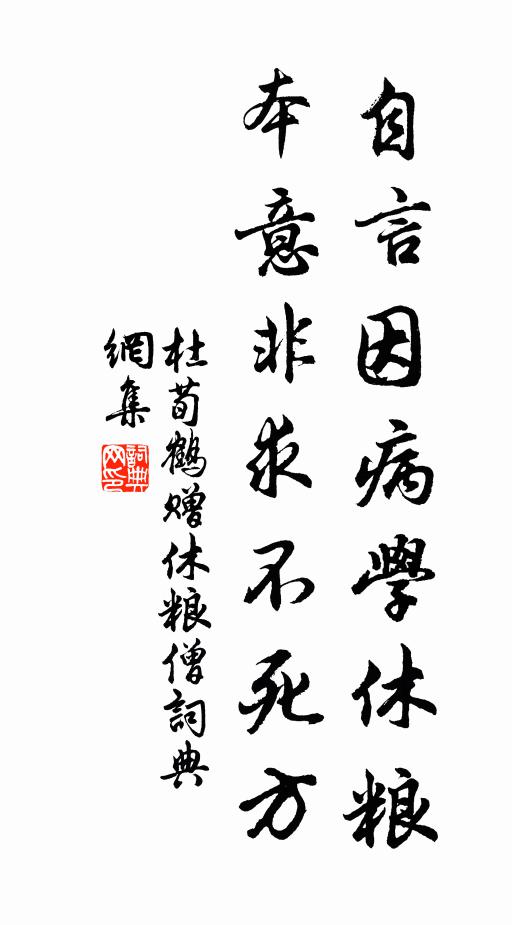 自言因病學休粮
本意非求不死方
杜荀鶴赠休粮僧詞典
網集
詞典
网印